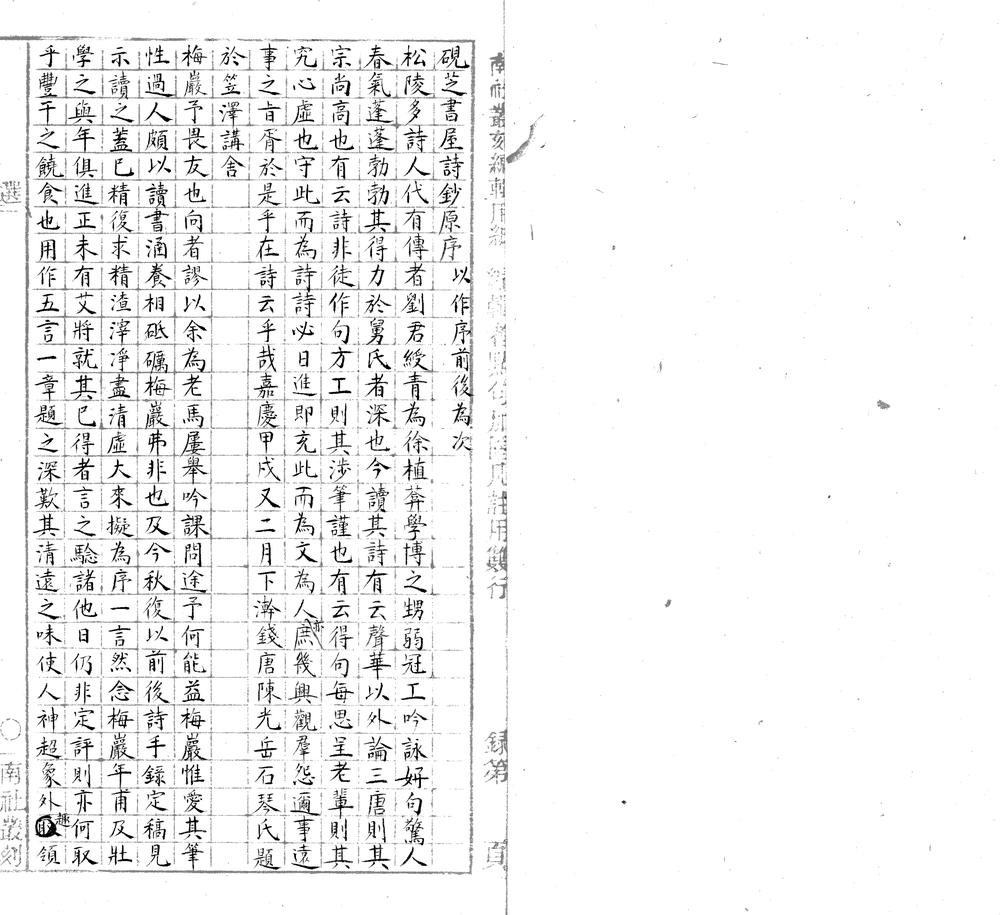 南社叢刻編輯用紙
硯芝書屋詩鈔原序　以作序前後為次
松陵多詩人代有傳者劉君綬青為徐植葊學博之甥弱冠工吟詠妍句驚人
春氣蓬蓬勃勃其得力於舅氏者深也今讀其詩有云聲華以外論三唐則其
宗尚高也有云詩非徒作句方工則其涉筆謹也有云得句每思呈老輩則其
究心虛也守此而為詩詩必日進即充此而為文為人亦庶幾興觀羣怨邇事遠
事之旨胥於是乎在詩云乎哉嘉慶甲戌又二月下澣錢唐陳光岳石琴氏題
於笠澤講舍
梅巖予畏友也向者謬以余為老馬屢舉吟課問途予何能益梅巖惟愛其筆
性過人頗以讀書涵養相砥礪梅巖弗非也及今秋復以前後詩手錄定稿見
示讀之蓋已精復求精渣滓凈盡清虛大來擬為序一言然念梅巖年甫及壯
學之與年俱進正未有艾將就其已得者言之騐諸他日仍非定評則亦何取
乎豐干之饒食也用作五言一章題之深歎其清遠之味使人神超象外趣領
選
○
南社叢刻
錄第　頁